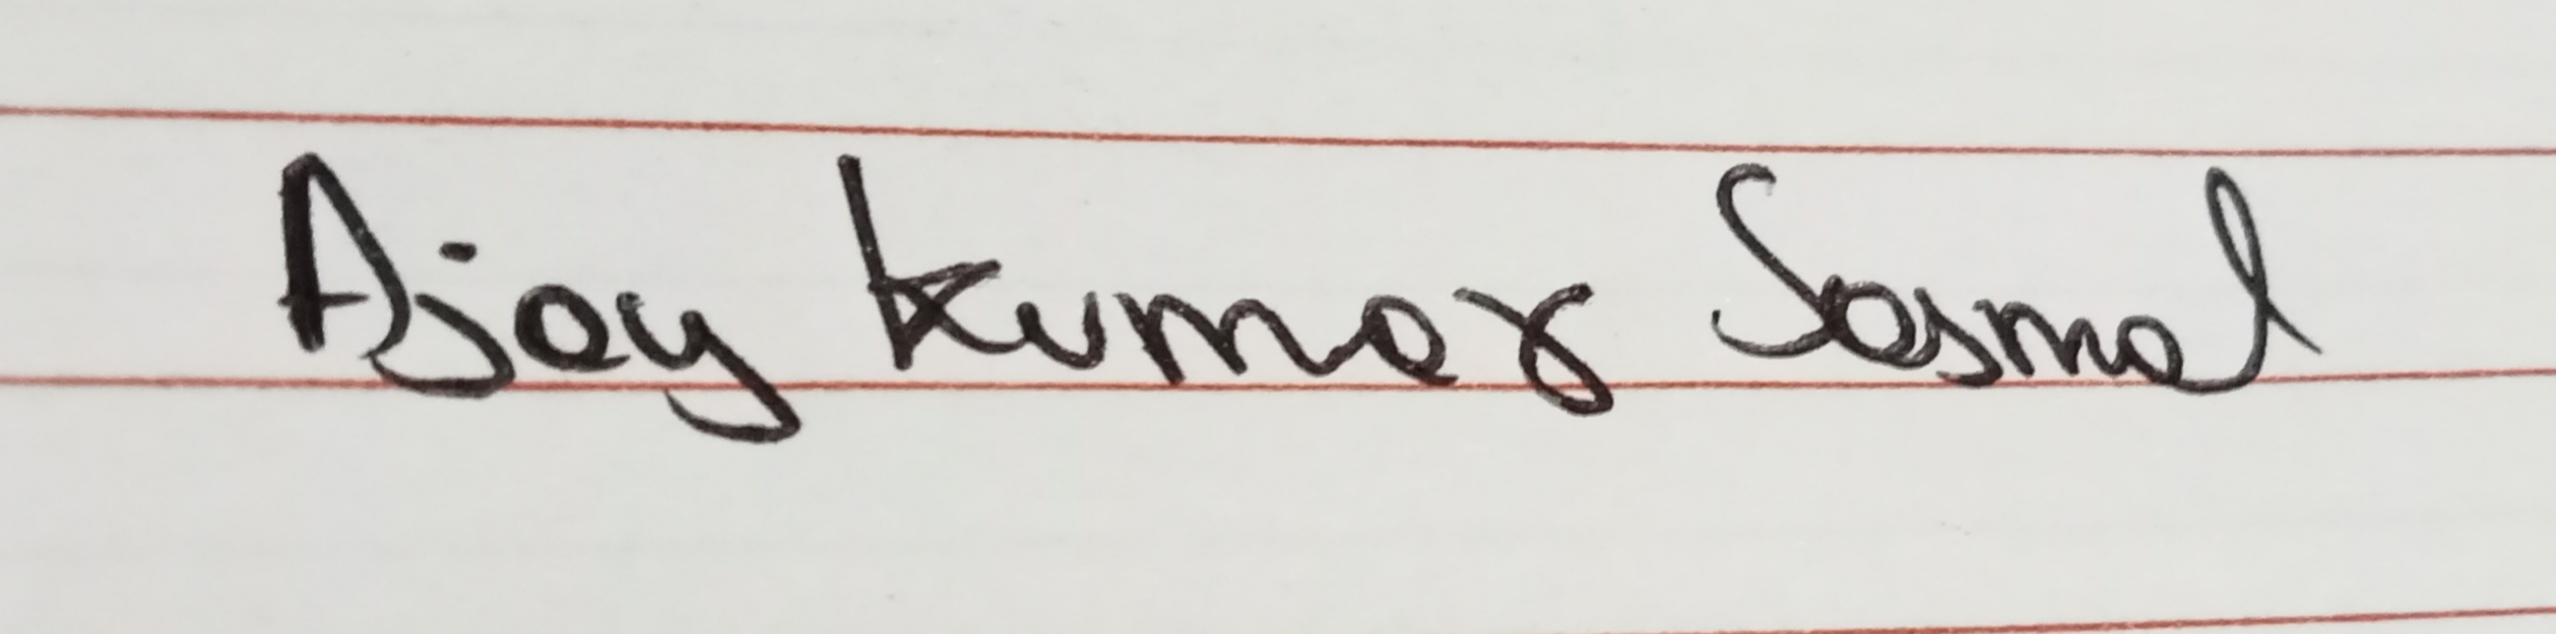 Ajay Kumar Sasmal